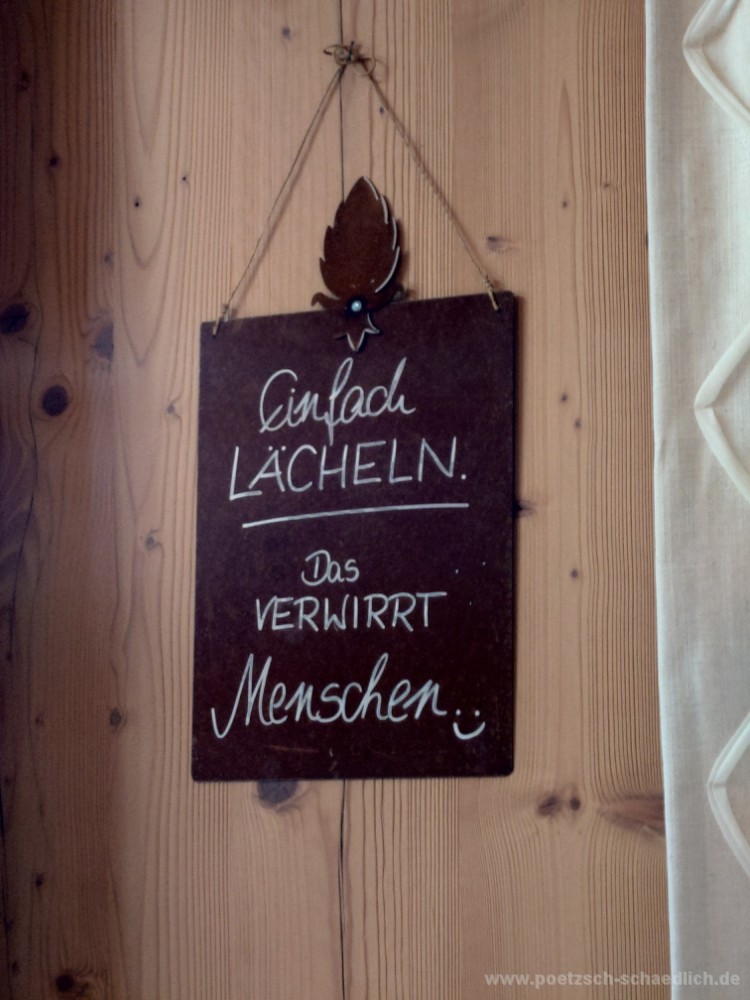 Einfach
LÄCHELN.
Das
VERWIRRT
Menschen..
www.poetzsch-schaedlich.de